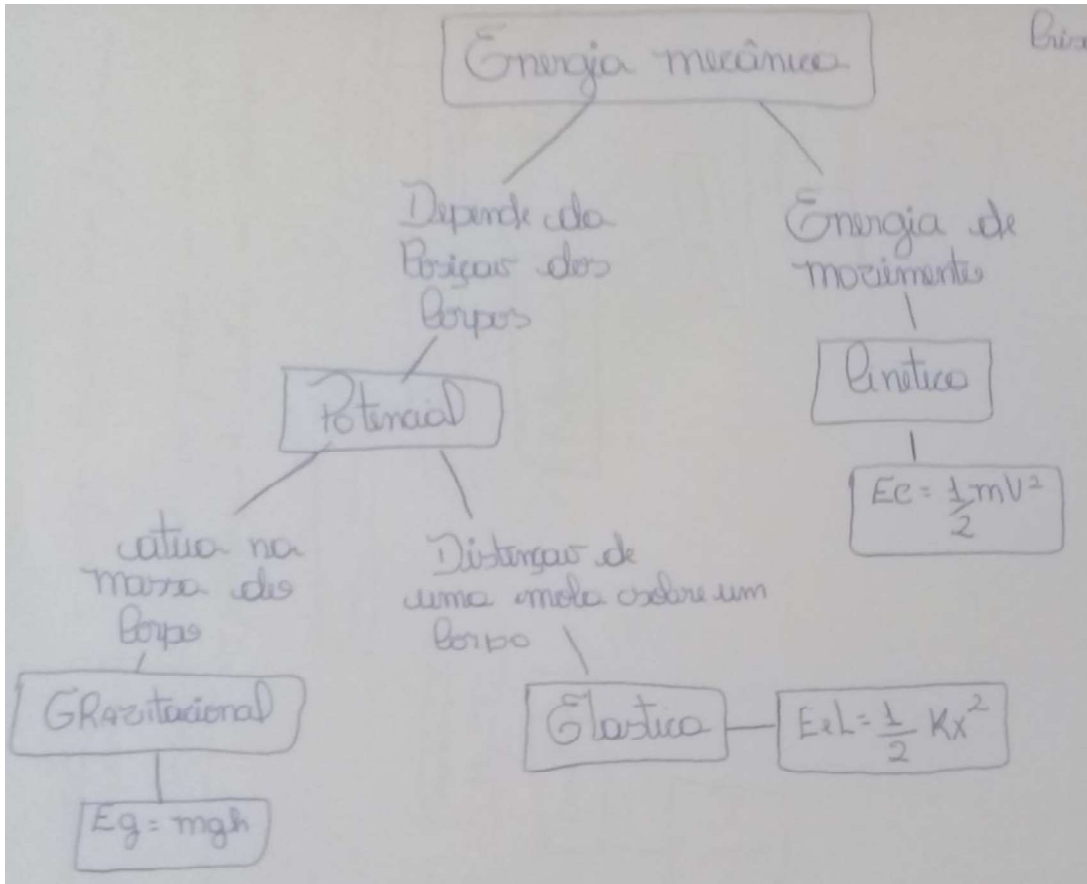 Energia mecânica
Depende da
Posição dos
Corpos
Energia de
movimento
Potencial
Cinética
Ec = 1/2 mv²
atua na
massa do
Corpo
Distenção de
uma mola sobre um
Corpo
GRavitacional
Elastica
EeL = 1/2 Kx²
Eg = mgh